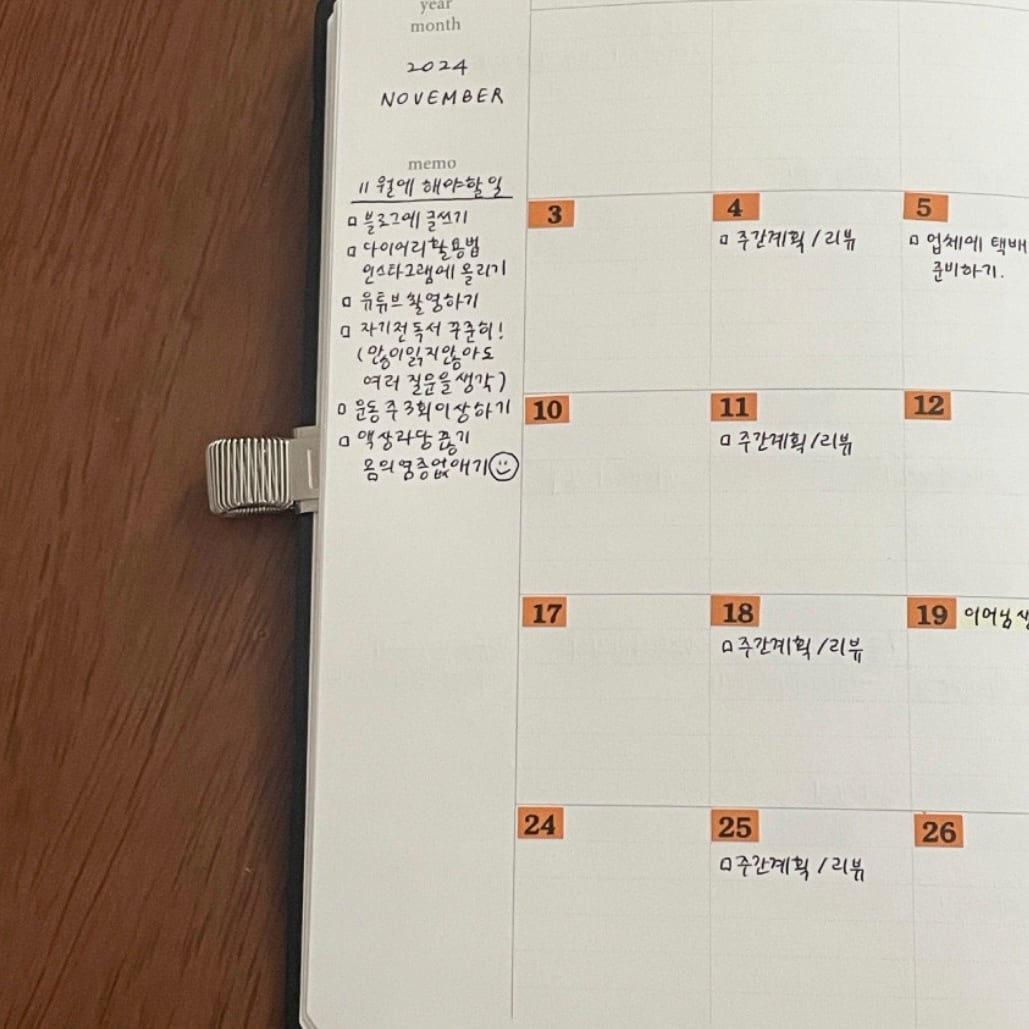 year
month
2024
NOVEMBER
memo
11월에 해야할 일
□ 블로그에 글쓰기
□ 다이어리 활용법
인스타그램에 올리기
□ 유튜브 촬영하기
□ 자기전 독서 꾸준히!
(많이 읽지 않아도
여러 질문을 생각)
□ 운동 주 3회 이상 하기
□ 액상과당 끊기
몸의 염증 없애기
3
4
5
□ 주간계획 / 리뷰
□ 업체에 택배
준비하기.
10
11
12
□ 주간계획 / 리뷰
17
18
19 이어님
□ 주간계획 / 리뷰
24
25
26
□ 주간계획 / 리뷰